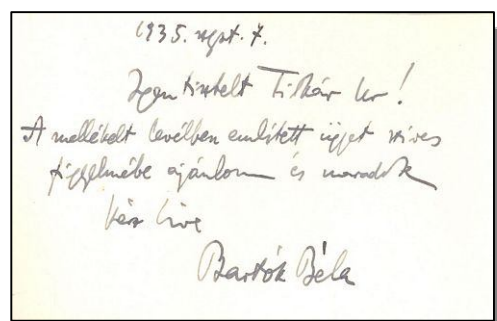 1935. szept. 7.
Igen tisztelt Titkár Ur!
A mellékelt levélben említett ügyet szives
figyelmébe ajánlom és maradok
kész hive
Bartók Béla